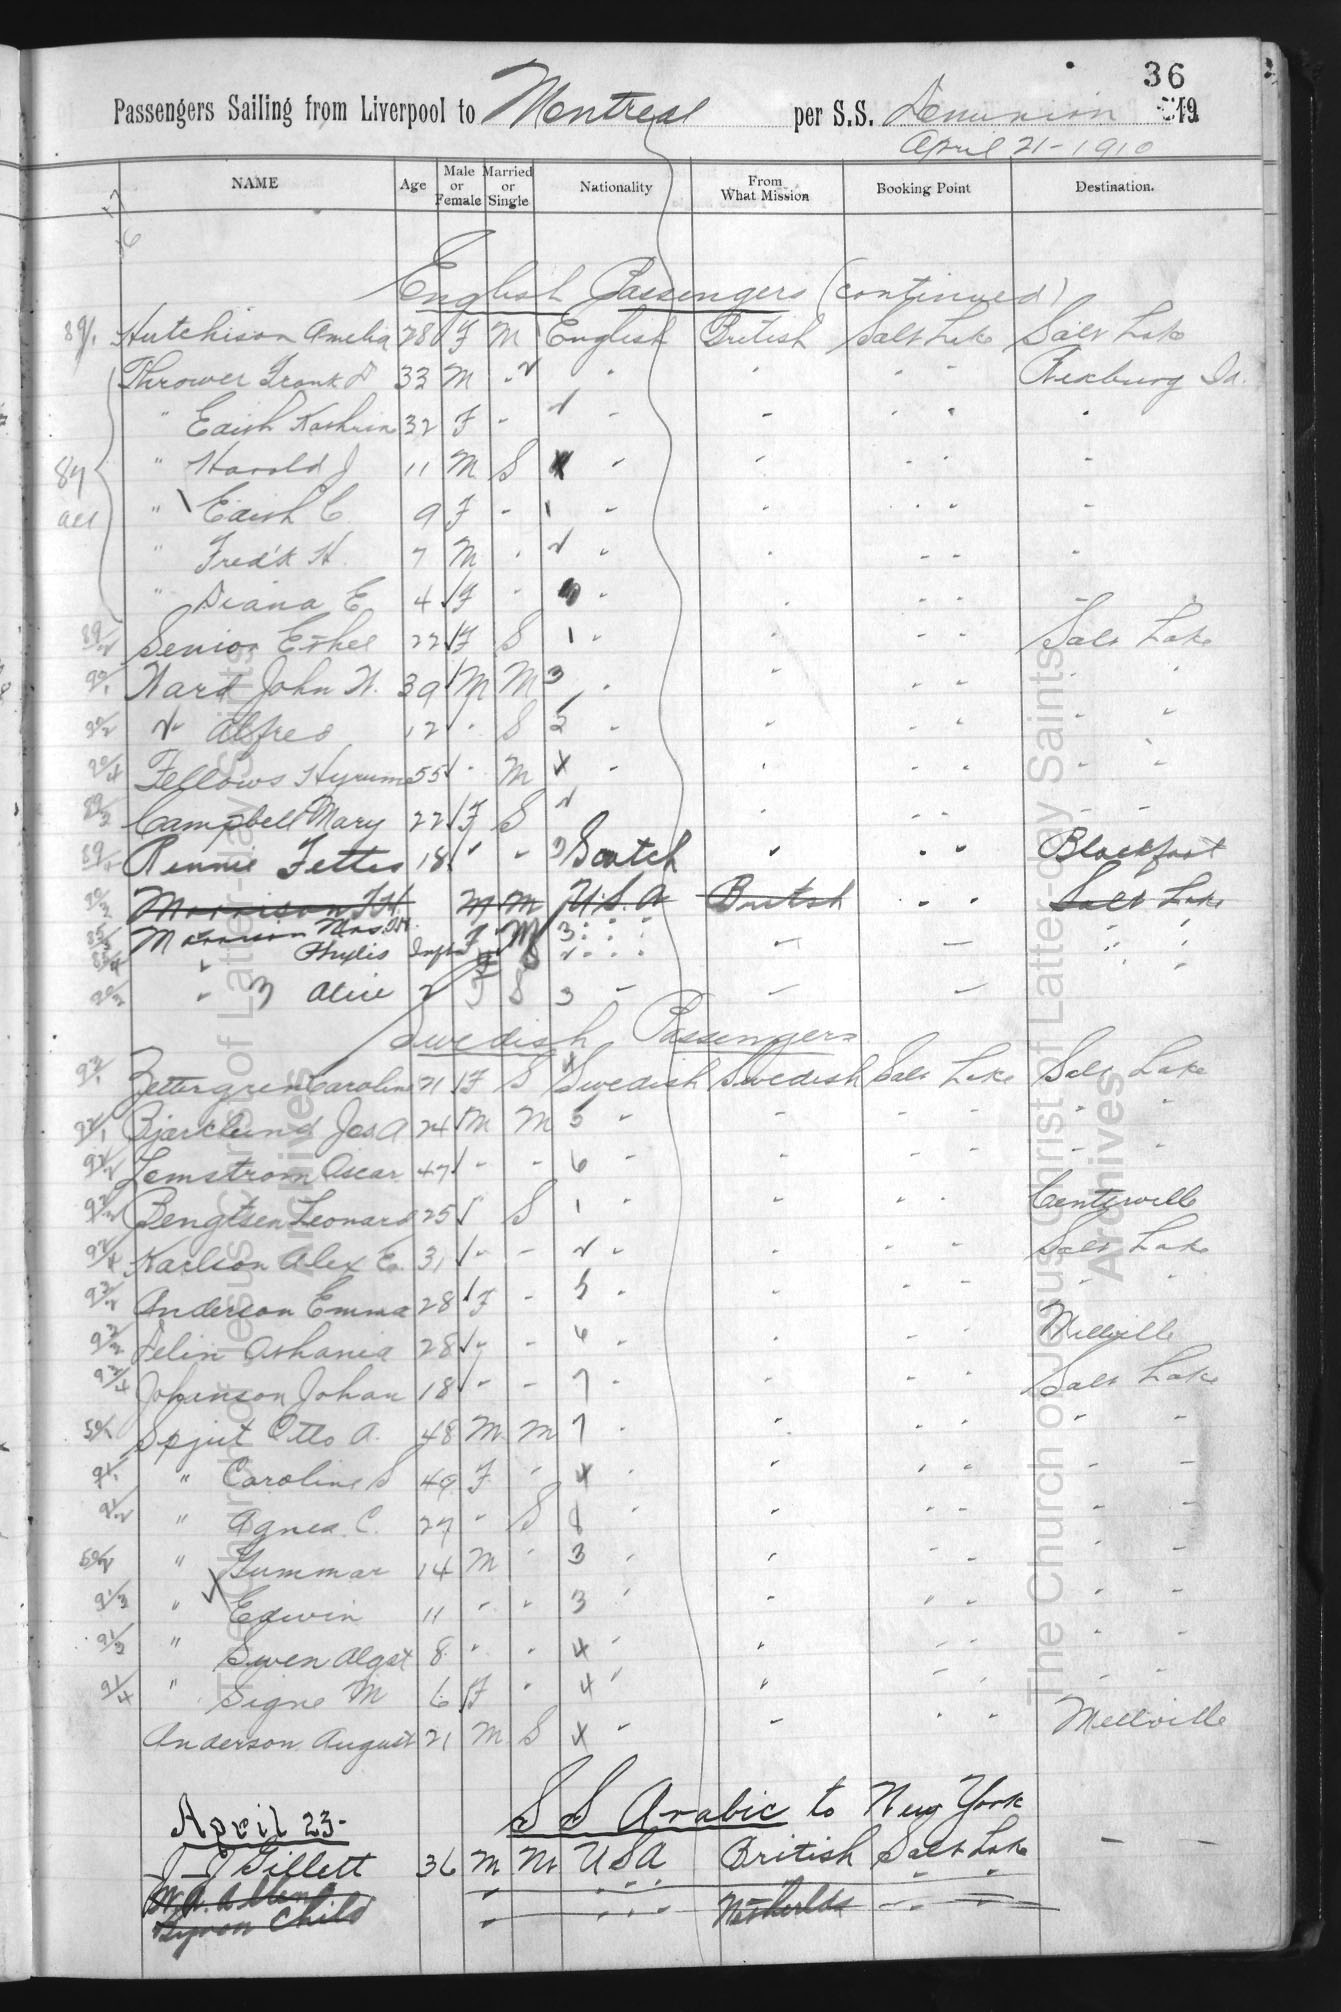 36
Passengers Sailing from Liverpool to Montreal per S.S. Dominion 191
April 21-1910
NAME Age Male or Female Married or Single Nationality From What Mission Booking Point Destination.
English Passengers (continued)
89/1 Hutchison Amelia 28 F M English British Salt Lake Salt Lake
Thrower Frank D 33 M " " " " " Rexburg Ida.
" Edith Kathrin 32 F " " " " " "
" Harold J 11 M S " " " " "
84 all
" Edith C 9 F " 1 " " " " "
" Fred'k H. 7 M " " " " " "
" Diana E 4 F " " " " " "
89/2 Senior Ethel 22 F S 1 " " " Salt Lake
90/1 Ward John W. 39 M M 3 " " " " " "
90/2 " Alfred 12 " S 2 " " " " " "
90/4 Fellows Hyrum 55 " M 4 " " " " " "
89/3 Campbell Mary 22 F S " " " " " "
89/4 Rennie Fettes 18 " " 3 Scotch " " " Blackfoot
90/3 Morrison T.H. M M U.S.A British " " Salt Lake
85/3 Morrison Mrs. T.H. F M 3 " " " " "
85/4 " Phylis Inft F S " " " " "
90/2 " Alice 2 F S 3 " " "
Swedish Passengers
93/1 Zettergren Caroline 21 F S 4 Swedish Swedish Salt Lake Salt Lake
92/1 Bjorklund Jos A 24 M M 5 " " " " " "
92/2 Lemstrom Oscar 47 " " 6 " " " " " "
92/3 Bengtsen Leonard 25 S 1 " " " " Centerville
92/4 Karlson Alex E. 31 " " 2 " " " " Salt Lake
93/2 Anderson Emma 28 F " 5 " " " " " "
93/3 Felin Athania 28 " " 6 " " " " Millville
93/4 Johanson Johan 18 " " 7 " " " " Salt Lake
59/1 Spjut Otto A. 48 M M 7 " " " " " "
91/1 " Caroline S 49 F " 4 " " " " " "
91/2 " Agnes. C. 27 " S 8 " " " " " "
59/2 " Gummar 14 M " 3 " " " " " "
91/3 " Edwin 11 " " 3 " " " " " "
91/3 " Swen Algot 8 " " 4 " " " " " "
91/4 " Signe M 6 F " 4 " " " " " "
Anderson August 21 M S 4 " " " " Mellville
April 23- S S Arabic to New York
J J Gillett 36 M M USA British Salt Lake — —
W.A. Allen " " " " " "
Byron Child " " " " Netherlds " "
The Church of Jesus Christ of Latter-day Saints
Archives
The Church of Jesus Christ of Latter-day Saints
Archives